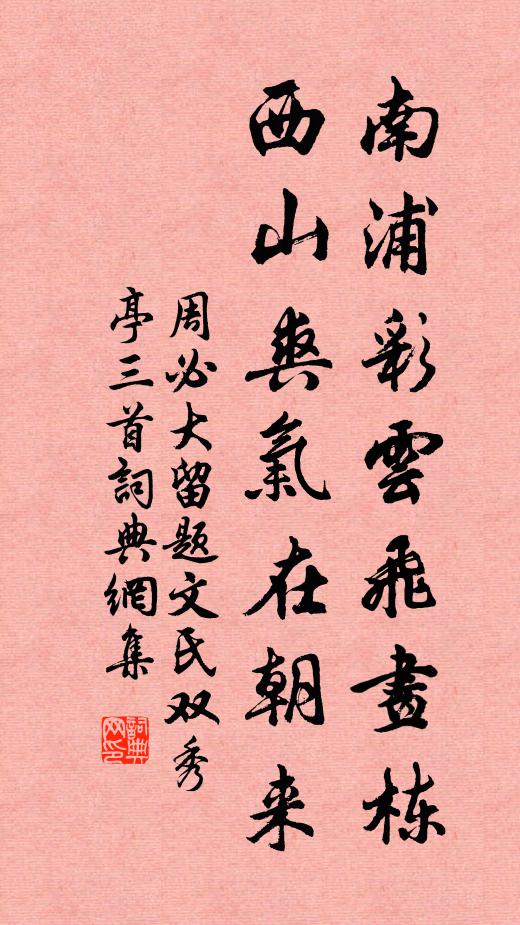 南浦彩雲飛畫栋
西山爽氣在朝来
周必大留题文氏双秀
亭三首詞典網集
詞典
网印